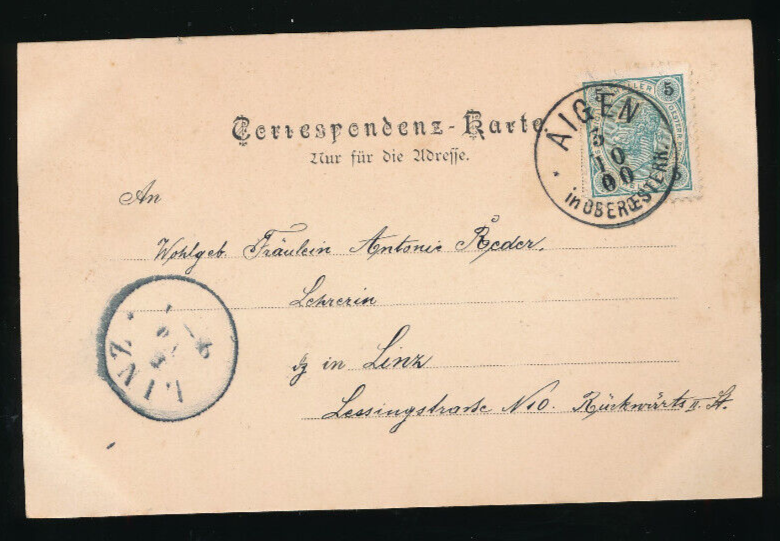 Correspondenz-Karte
Nur für die Adresse.
5 HELLER 5
AIGEN
3
10
00
in OBEROESTERR.
An
Wohlgeb. Fräulein Antonie Reder,
Lehrerin
in Linz
Lessingstraße No.
Rückwärts II. St.
LINZ